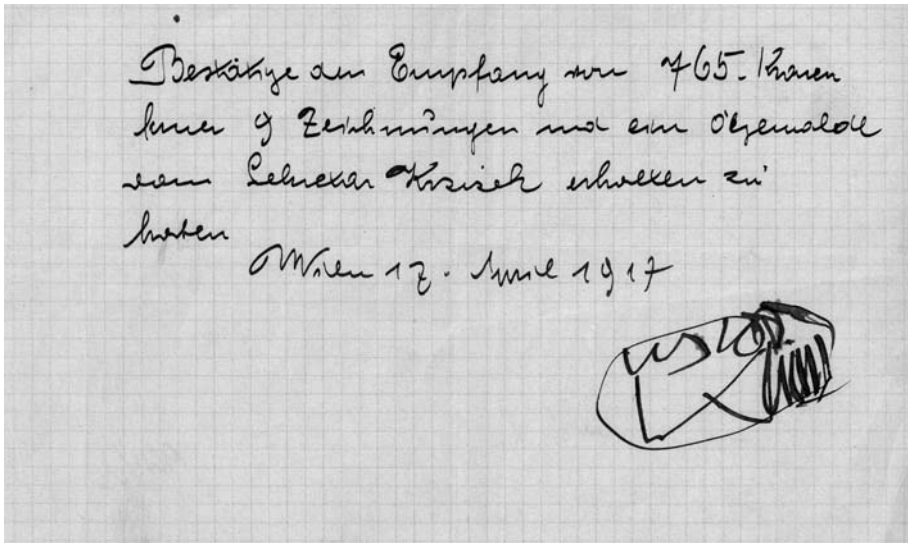 Bestätige den Empfang von 765.- Kronen
für 9 Zeichnungen und ein Ölgemälde
vom Sekretär erhalten zu
haben
Wien 17. April 1917